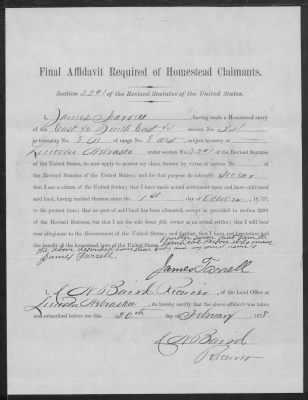 Final Affidavit Required of Homestead Claimants.
Section 2291 of the Revised Statutes of the United States.
I, James Farrell, having made a Homestead entry of the
East ½ South East ¼ section No.
in township No. 8 N of range No. 8 East subject to entry at
Lincoln Nebraska under section No. 2289 of the Revised Statutes
of the United States, do now apply to perfect my claim thereto by virtue of section No.
of the Revised Statutes of the United States; and for that purpose do solemnly swear
that I am a citizen of the United States; that I have made actual settlement upon and have cultivated
said land, having resided thereon since the 1st day of 18
to the present time; that no part of said land has been alienated, except as provided in section 2288
of the Revised Statutes, but that I am the sole bona fide owner as an actual settler; that I will bear
true allegiance to the Government of the United States; and further, that I have not heretofore had
the benefit of the homestead laws
the above
James Farrell.
James Farrell
I, Receiver, of the Land Office at
Lincoln Nebraska, do hereby certify that the above affidavit was taken
and subscribed before me this 20th day of February 1878
Receiver